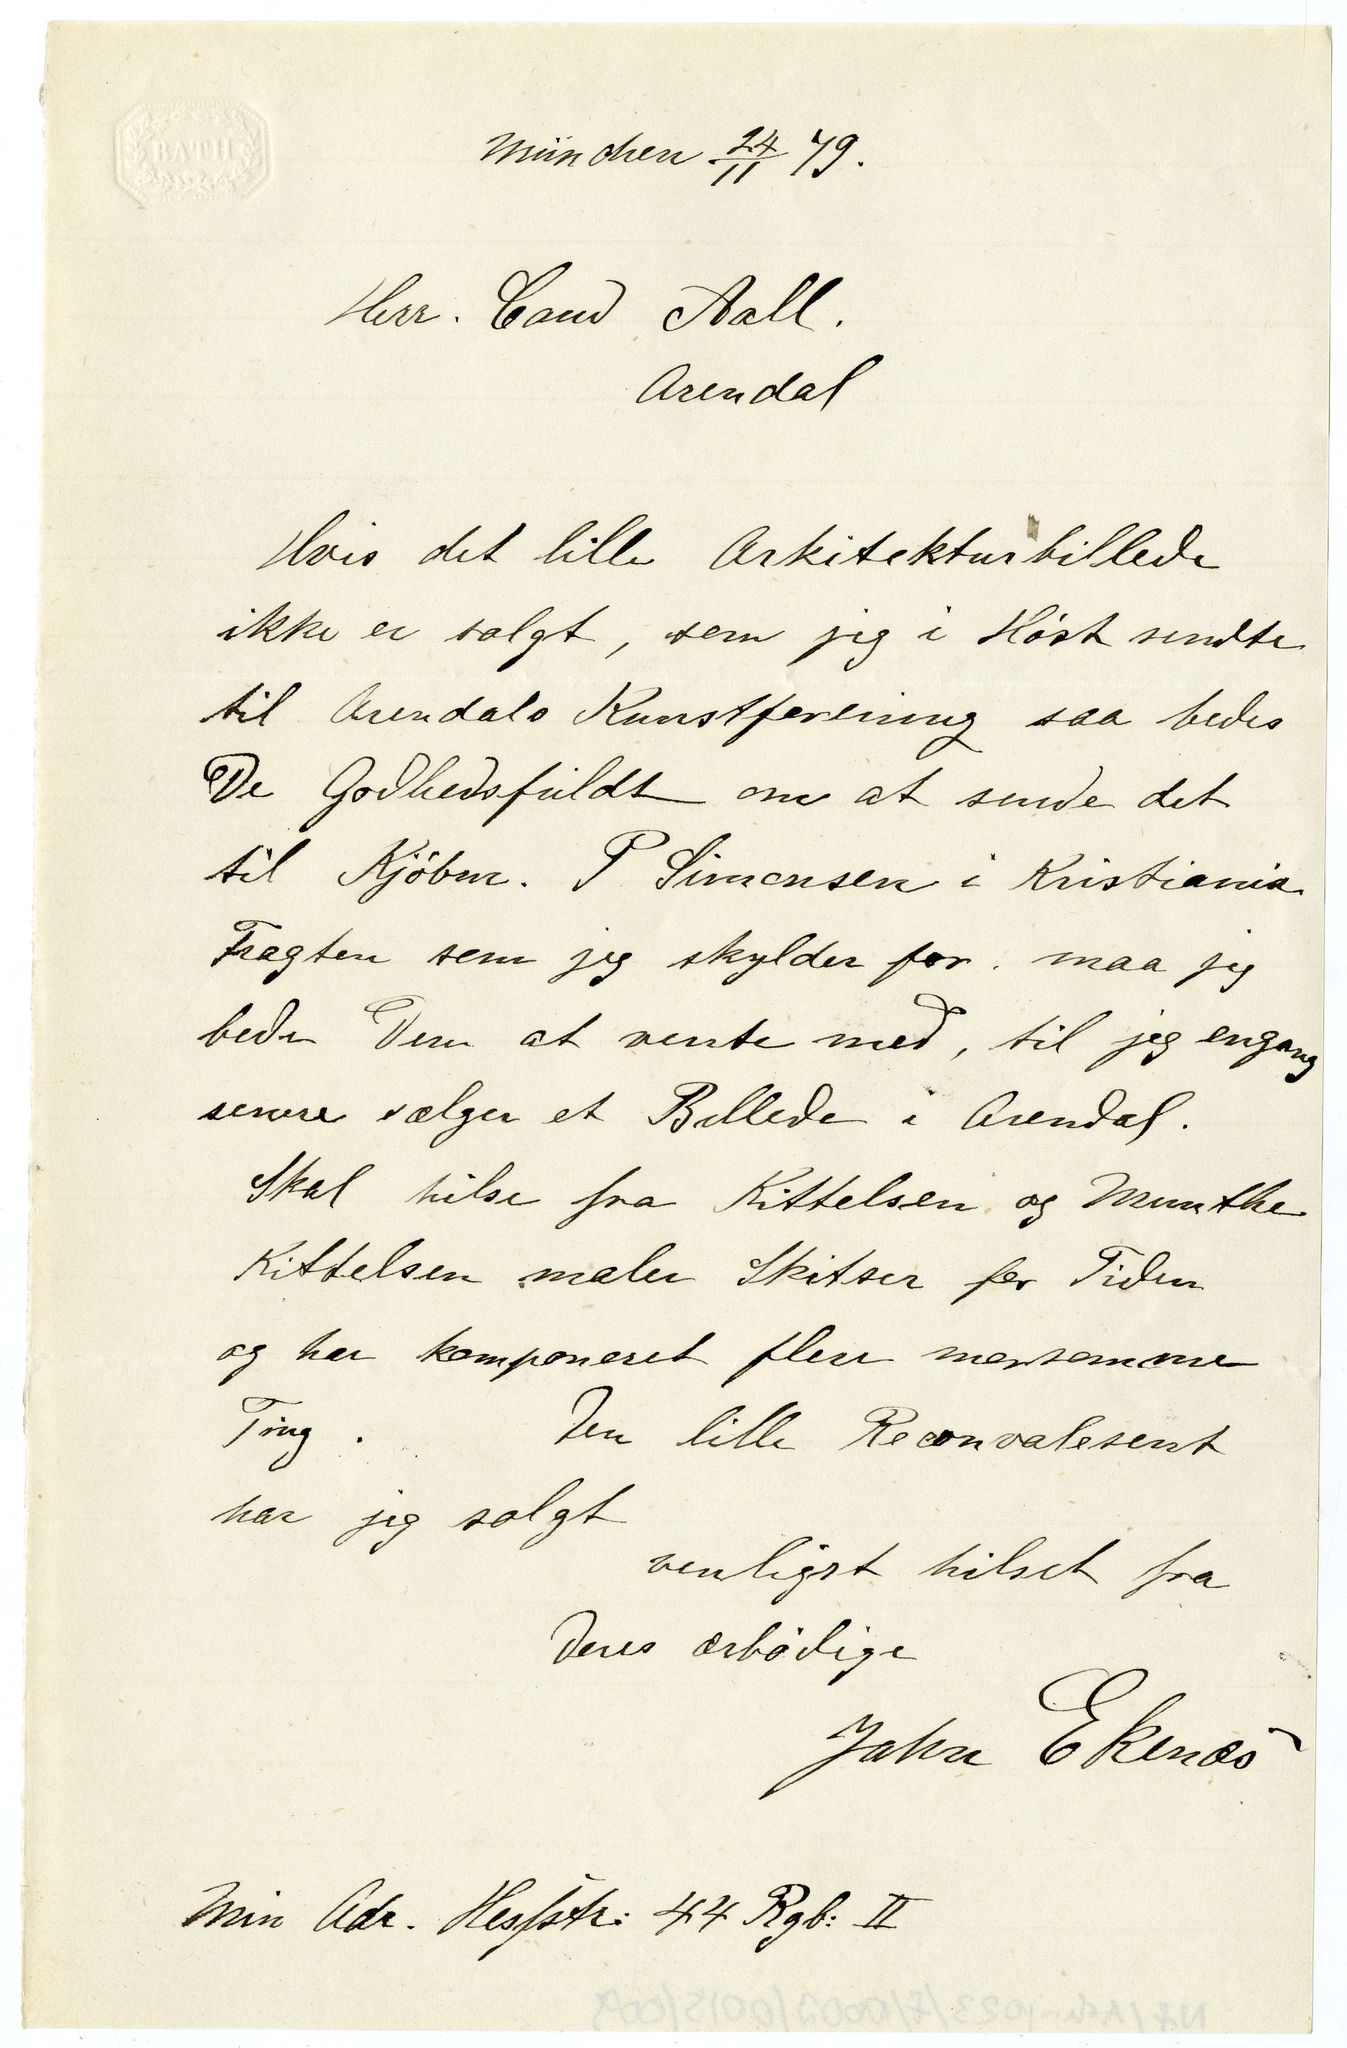 BATH
München 24/11 79.
Herr. Cand Aall.
Arendal
Hvis det lille Arkitekturbillede
ikke er solgt, som jeg i Höst sendte
til Arendals Kunstforening saa bedes
De Godhedsfuldt om at sende det
til Kjöbm. P Simonsen i Kristiania
Fragten som jeg skylder for. maa jeg
bede Dem at vente med, til jeg engang
senere sælger et Billede i Arendal.
Skal hilse fra Kittelsen og Munthe
Kittelsen maler Skitser for Tiden
og har komponeret flere morsomme
Ting. Den lille Reconvalesent
har jeg solgt
venligst hilset fra
Deres ærbödige
Jahn Ekenæs
Min Adr. Hessstr: 44 Rgb: II